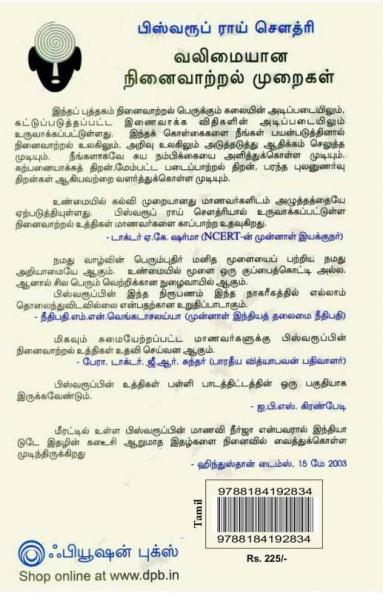 பிஸ்வரூப் ராய் சௌத்ரி
வலிமையான
நினைவாற்றல் முறைகள்
இந்தப் புத்தகம் நினைவாற்றல் பெருக்கும் கலையின் அடிப்படையிலும்,
கட்டுப்படுத்தப்பட்ட இனைவாக்க விதிகளின் அடிப்படையிலும்
உருவாக்கப்பட்டுள்ளது. இந்தக் கொள்கைகளை நீங்கள் பயன்படுத்தினால்
நினைவாற்றல் உலகிலும், அறிவு உலகிலும் அடுத்தடுத்து ஆதிக்கம் செலுத்த
முடியும். நீங்களாகவே சுய நம்பிக்கையை அளித்துக்கொள்ள முடியும்.
கற்பனையாக்கத் திறன்,மேம்பட்ட படைப்பாற்றல் திறன், பரந்த புலனுணர்வு
திறன்கள் ஆகியவற்றை வளர்த்துக்கொள்ள முடியும்.
உண்மையில் கல்வி முறையானது மாணவர்களிடம் அழுத்தத்தையே
ஏற்படுத்தியுள்ளது. பிஸ்வரூப் ராய் சௌத்ரியால் உருவாக்கப்பட்டுள்ள
நினைவாற்றல் உத்திகள் மாணவர்களை காப்பாற்ற உதவுகிறது.
- டாக்டர் ஏ.கே. ஷர்மா (NCERT-ன் முன்னாள் இயக்குநர்)
நமது வாழ்வின் பெரும்புதிர் மனித மூளையைப் பற்றிய நமது
அறியாமையே ஆகும். உண்மையில் மூளை ஒரு குப்பைக்கொட்டி அல்ல.
ஆனால் சில பேரும் வெற்றிக்கான நுழைவாயில் ஆகும்.
பிஸ்வரூப்பின் இந்த நிரூபணம் இந்த நாகரீகத்தில் எல்லாம்
தொலைந்துவிடவில்லை என்பதற்கான உறுதிப்பாடாகும்.
- நீதிபதி.எம்.என்.வெங்கடாசலய்யா (முன்னாள் இந்தியத் தலைமை நீதிபதி)
மிகவும் சுமையேற்றப்பட்ட மாணவர்களுக்கு பிஸ்வரூப்பின்
நினைவாற்றல் உத்திகள் உதவி செய்வன ஆகும்.
- பேரா. டாக்டர். ஜீ.ஆர். சுந்தர் (பாரதீய வித்யாபவன் பதிவாளர்)
பிஸ்வரூப்பின் உத்திகள் பள்ளி பாடத்திட்டத்தின் ஒரு பகுதியாக
இருக்கவேண்டும்.
- ஐ.பி.எஸ். கிரண்பேடி
மீரட்டில் உள்ள பிஸ்வரூப்பின் மாணவி நீர்ஜா என்பவரால் இந்தியா
டுடே இதழின் கடைசி ஆறுமாத இதழ்களை நினைவில் வைத்துக்கொள்ள
முடிந்திருக்கிறது
- ஹிந்துஸ்தான் டைம்ஸ், 15 மே 2003
9788184192834
Tamil
9788184192834
Rs. 225/-
ஃபியூஷன் புக்ஸ்
Shop online at www.dpb.in